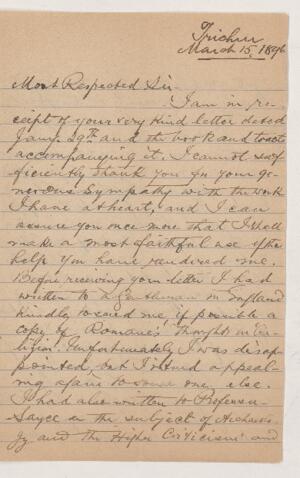 Trichur
March 15, 1896
Most Respected Sir
I am in re-
ceipt of your very kind letter dated
Jany. 29th and the book and tracts
accompanying it. I cannot suf-
ficiently thank you for your ge-
nerous sympathy with the work
I have at heart, and I can
assure you once more that I shall
make a most faithful use of the
help you have rendered me.
Before receiving your letter I had
written to a gentleman in England
kindly to send me, if possible a
copy of Romanes' thoughts on Re-
ligion. Unfortunately I was disap-
pointed, but I intend appeal-
ing again to some one else.
I had also written to Professor
Sayce on the subject of Archaeolo-
gy and the Higher Criticism and